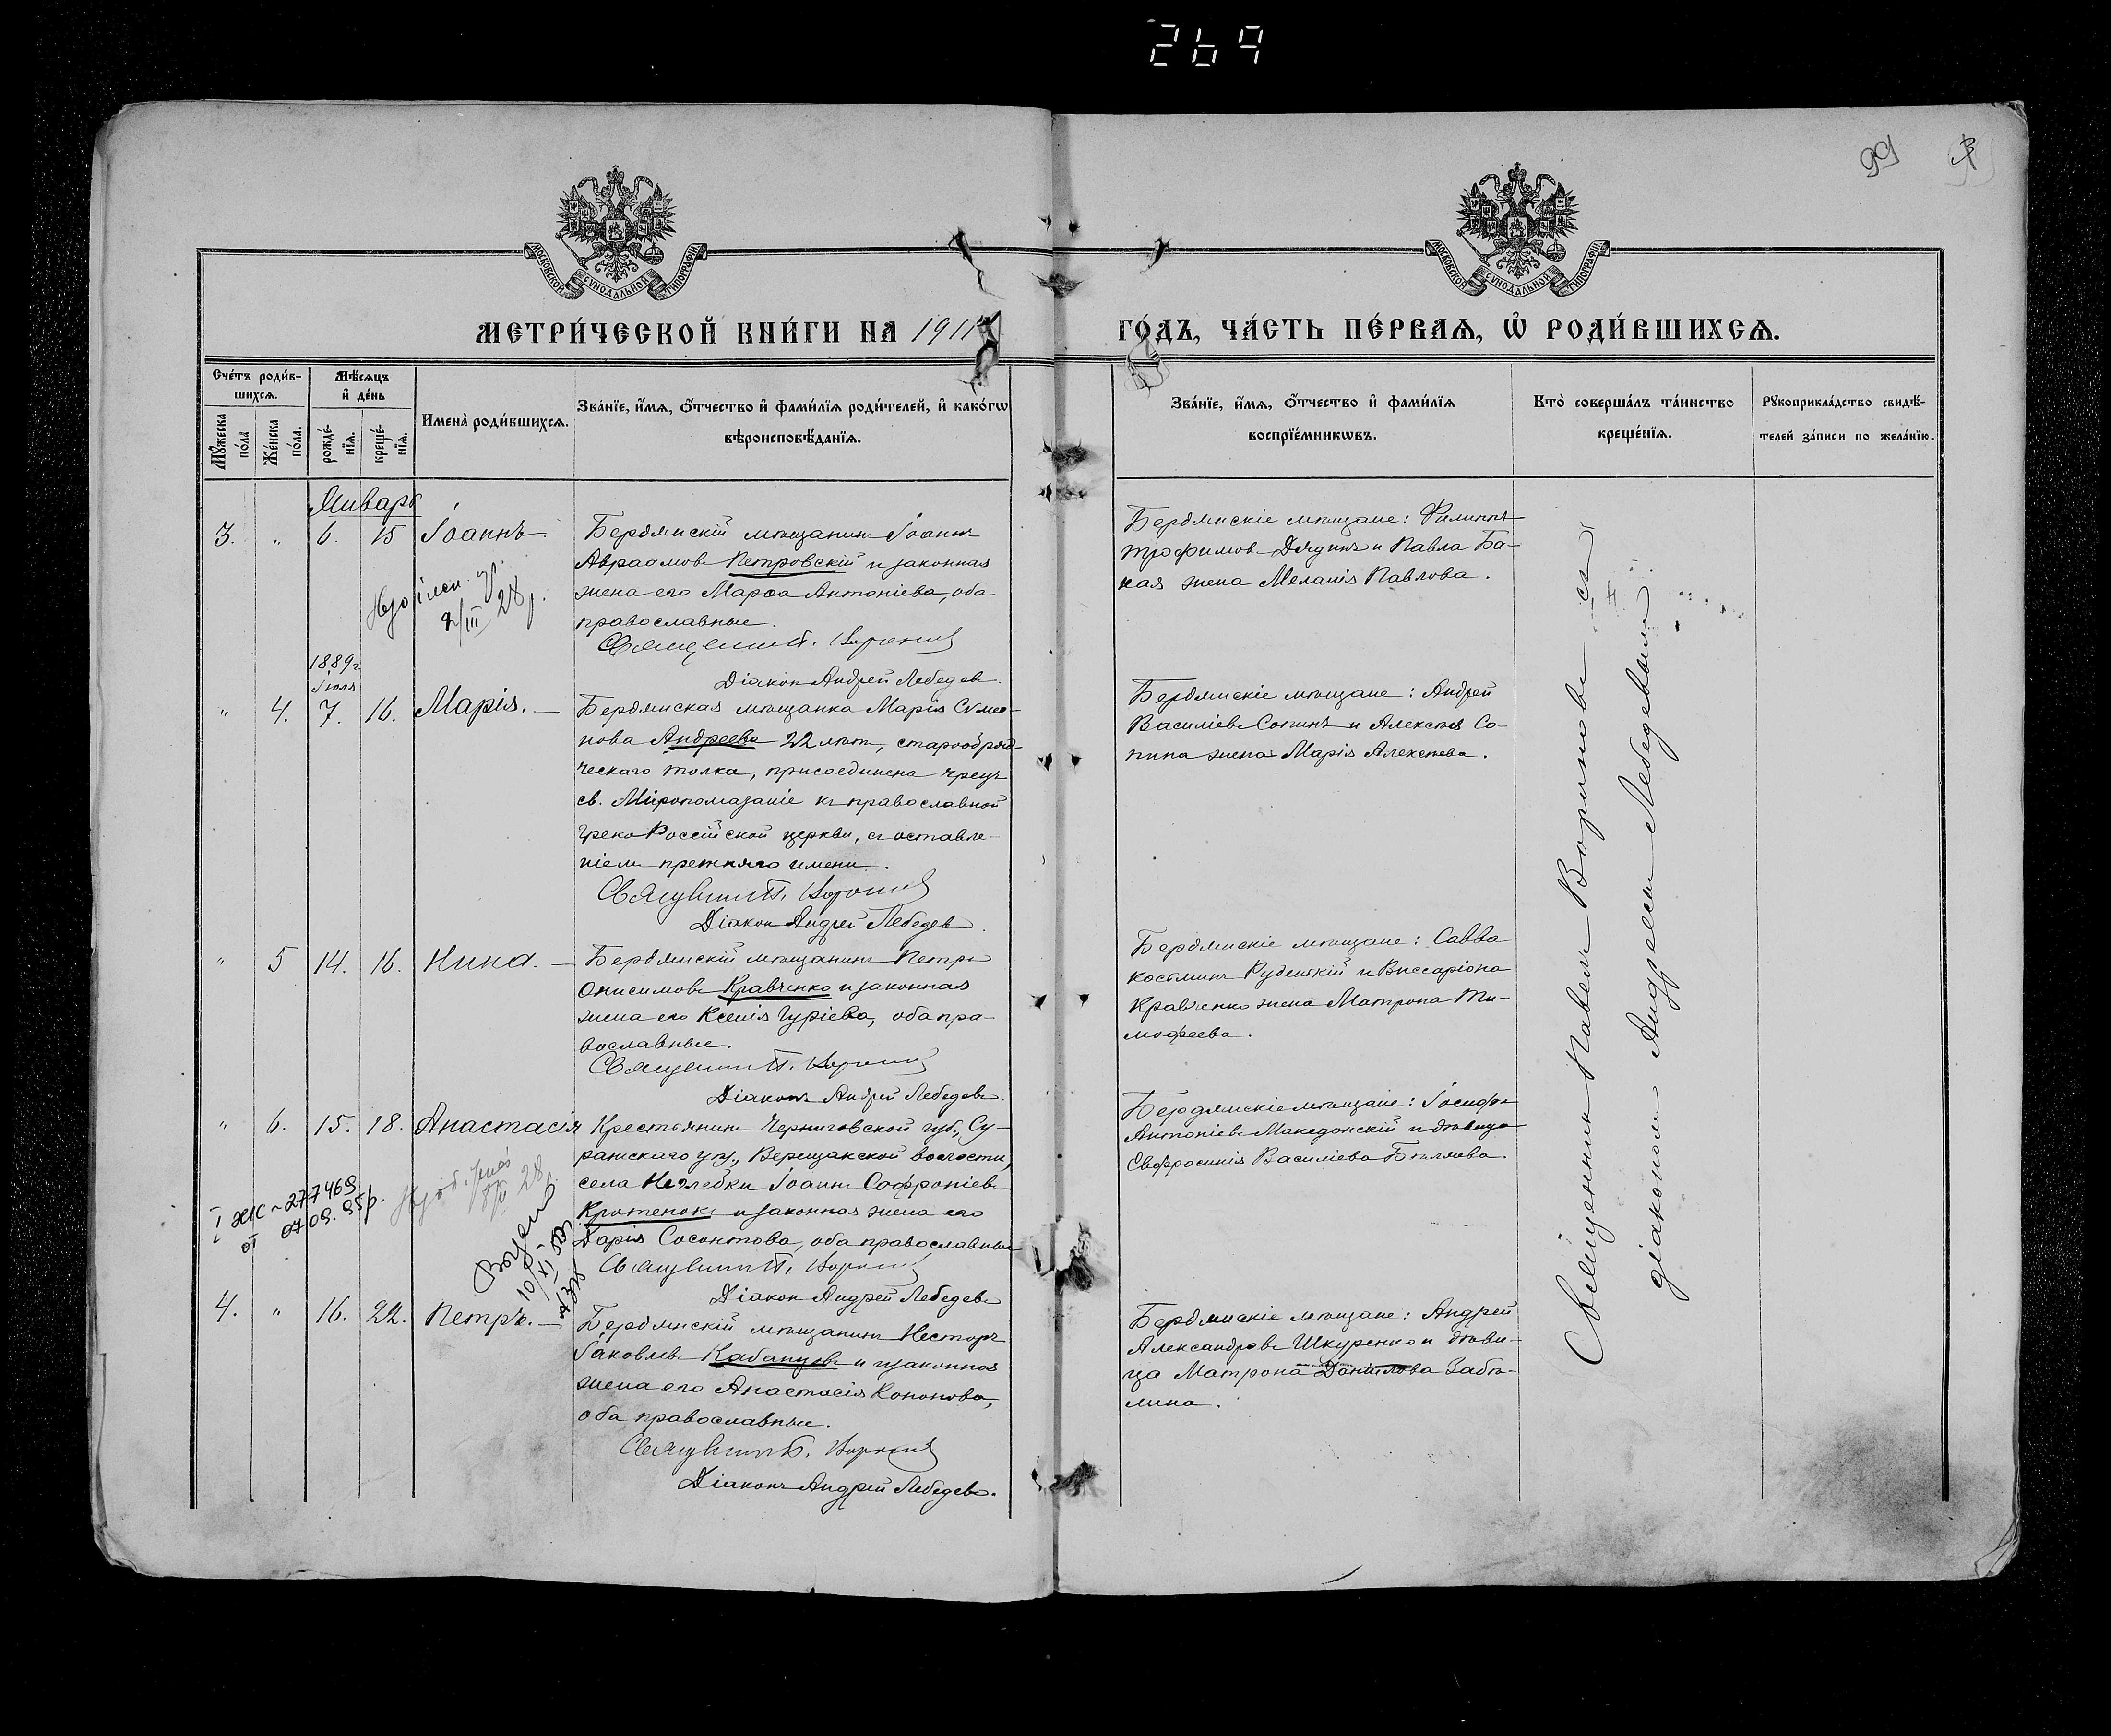 269
99
МОСКОВСКОЙ СУНОДАЛЬНОЙ ТИПОГРАФІИ
МОСКОВСКОЙ СУНОДАЛЬНОЙ ТИПОГРАФІИ
МЕТРИ́ЧЕСКОЙ КНИ́ГИ НА 1911
ГО́ДЪ, ЧА́СТЬ ПЕ́РВАѦ, Ѡ҆ РОДИ́ВШИХСѦ.
Сче́тъ роди́в-
шихсѧ.
Мꙋ́жеска по́ла
Же́нска по́ла.
Мѣ́сѧцъ
и҆ де́нь
рожде́-
нїѧ.
креще́-
нїѧ.
Имена̀ роди́вшихсѧ.
Зва́нїе, и҆́мѧ, ѻ҆́тчество и҆ фами́лїѧ роди́телей, и҆ како́гѡ
вѣроисповѣ́данїѧ.
Зва́нїе, и҆́мѧ, ѻ҆́тчество и҆ фами́лїѧ
воспрїе́мникѡвъ.
Кто̀ соверша́лъ та́инство
креще́нїѧ.
Рꙋкоприкла́дство свидѣ́-
телей за́писи по жела́нїю.
Январь
3. " 6. 15 Іоаннъ
Бердянскій мѣщанинъ Іоаннъ
Авраамовъ Петровскій и законная
жена его Марѳа Антоніева, оба
православные.
Священникъ П. Воронинъ
Діаконъ Андрей Лебедевъ.
Бердянскіе мѣщане: Филиппъ
Трофимовъ Дядинъ и Павла Ба-
кая жена Меланія Павлова.
2/III 28 р.
1889 г.
Іюля
" 4. 7. 16. Марія.
Бердянская мѣщанка Марія Сѵмео-
нова Андреева 22 лѣтъ, старообряд-
ческаго толка, присоединена чрезъ
св. Мѵропомазаніе къ православной
Греко Россійской церкви, съ оставле-
ніемъ прежняго имени.
Священникъ П. Воронинъ
Діаконъ Андрей Лебедевъ.
Бердянскіе мѣщане: Андрей
Василіевъ Сопинъ и Алексѣя Со-
пина жена Марія Алексѣева.
" 5 14. 16. Нина.
Бердянскій мѣщанинъ Петръ
Онисимовъ Кравченко и законная
жена его Ксенія Гуріева, оба пра-
вославные.
Священникъ П. Воронинъ
Діаконъ Андрей Лебедевъ.
Бердянскіе мѣщане: Савва
Костминъ Рудецкій и Виссаріона
Кравченко жена Матрона Ти-
мофеева.
" 6. 15. 18. Анастасія
Крестьянинъ Черниговской губ., Су-
ражскаго уѣз., Верещакской волости,
села Неглебки Іоаннъ Софроніевъ
Кротенокъ и законная жена его
Дарія Сосонтова, оба православные
Священникъ П. Воронинъ
Діаконъ Андрей Лебедевъ
Бердянскіе мѣщане: Іосифъ
Антоніевъ Македонскій и дѣвица
Евфросинія Василіева Бѣляева.
I ЖС ~277469
от 07.09.95р.
4. " 16. 22. Петръ.
Бердянскій мѣщанинъ Несторъ
Іаковлевъ Кабанцевъ и законная
жена его Анастасія Кононова,
оба православные.
Священникъ П. Воронинъ
Діаконъ Андрей Лебедевъ.
Бердянскіе мѣщане: Андрей
Александровъ Шкуренко и дѣви-
ца Матрона Данилова Забѣ-
лина.
Священникъ Павелъ Воронинъ съ
діакономъ Андреемъ Лебедевымъ.